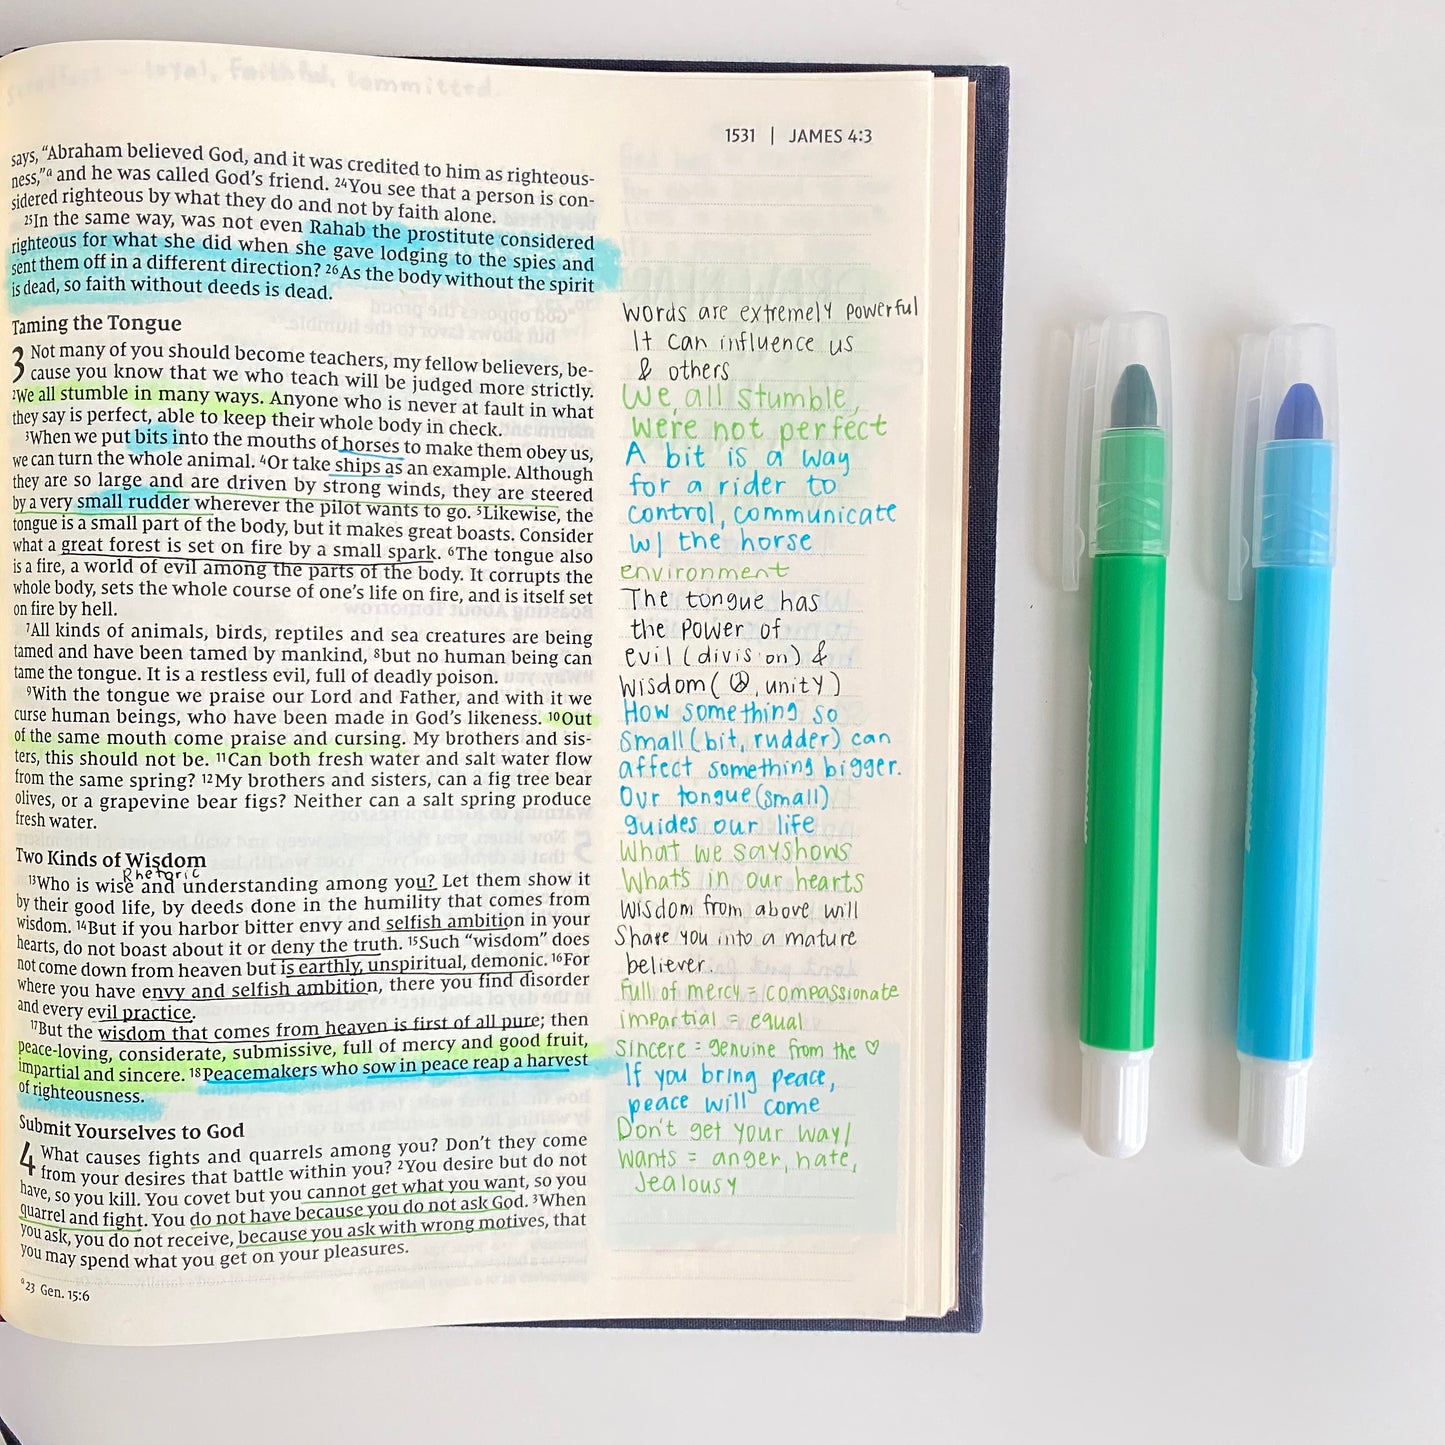 1531 | JAMES 4:3
says, “Abraham believed God, and it was credited to him as righteous-
ness,”a and he was called God’s friend. 24You see that a person is con-
sidered righteous by what they do and not by faith alone.
25In the same way, was not even Rahab the prostitute considered
righteous for what she did when she gave lodging to the spies and
sent them off in a different direction? 26As the body without the spirit
is dead, so faith without deeds is dead.
Taming the Tongue
3 Not many of you should become teachers, my fellow believers, be-
cause you know that we who teach will be judged more strictly.
2We all stumble in many ways. Anyone who is never at fault in what
they say is perfect, able to keep their whole body in check.
3When we put bits into the mouths of horses to make them obey us,
we can turn the whole animal. 4Or take ships as an example. Although
they are so large and are driven by strong winds, they are steered
by a very small rudder wherever the pilot wants to go. 5Likewise, the
tongue is a small part of the body, but it makes great boasts. Consider
what a great forest is set on fire by a small spark. 6The tongue also
is a fire, a world of evil among the parts of the body. It corrupts the
whole body, sets the whole course of one’s life on fire, and is itself set
on fire by hell.
7All kinds of animals, birds, reptiles and sea creatures are being
tamed and have been tamed by mankind, 8but no human being can
tame the tongue. It is a restless evil, full of deadly poison.
9With the tongue we praise our Lord and Father, and with it we
curse human beings, who have been made in God’s likeness. 10Out
of the same mouth come praise and cursing. My brothers and sis-
ters, this should not be. 11Can both fresh water and salt water flow
from the same spring? 12My brothers and sisters, can a fig tree bear
olives, or a grapevine bear figs? Neither can a salt spring produce
fresh water.
Two Kinds of Wisdom
Rhetoric
13Who is wise and understanding among you? Let them show it
by their good life, by deeds done in the humility that comes from
wisdom. 14But if you harbor bitter envy and selfish ambition in your
hearts, do not boast about it or deny the truth. 15Such “wisdom” does
not come down from heaven but is earthly, unspiritual, demonic. 16For
where you have envy and selfish ambition, there you find disorder
and every evil practice.
17But the wisdom that comes from heaven is first of all pure; then
peace-loving, considerate, submissive, full of mercy and good fruit,
impartial and sincere. 18Peacemakers who sow in peace reap a harvest
of righteousness.
Submit Yourselves to God
4 What causes fights and quarrels among you? Don’t they come
from your desires that battle within you? 2You desire but do not
have, so you kill. You covet but you cannot get what you want, so you
quarrel and fight. You do not have because you do not ask God. 3When
you ask, you do not receive, because you ask with wrong motives, that
you may spend what you get on your pleasures.
a23 Gen. 15:6
words are extremely powerful
It can influence us
& others
We all stumble,
Were not perfect
A bit is a way
for a rider to
control, communicate
w/ the horse
environment
The tongue has
the power of
evil (division) &
Wisdom (☮, unity)
How something so
small (bit, rudder) can
affect something bigger.
Our tongue (small)
guides our life
What we say shows
What's in our hearts
Wisdom from above will
Shape you into a mature
believer.
Full of mercy = compassionate
impartial = equal
Sincere = genuine from the ♡
If you bring peace,
peace will come
Don't get your way/
Wants = anger, hate,
Jealousy